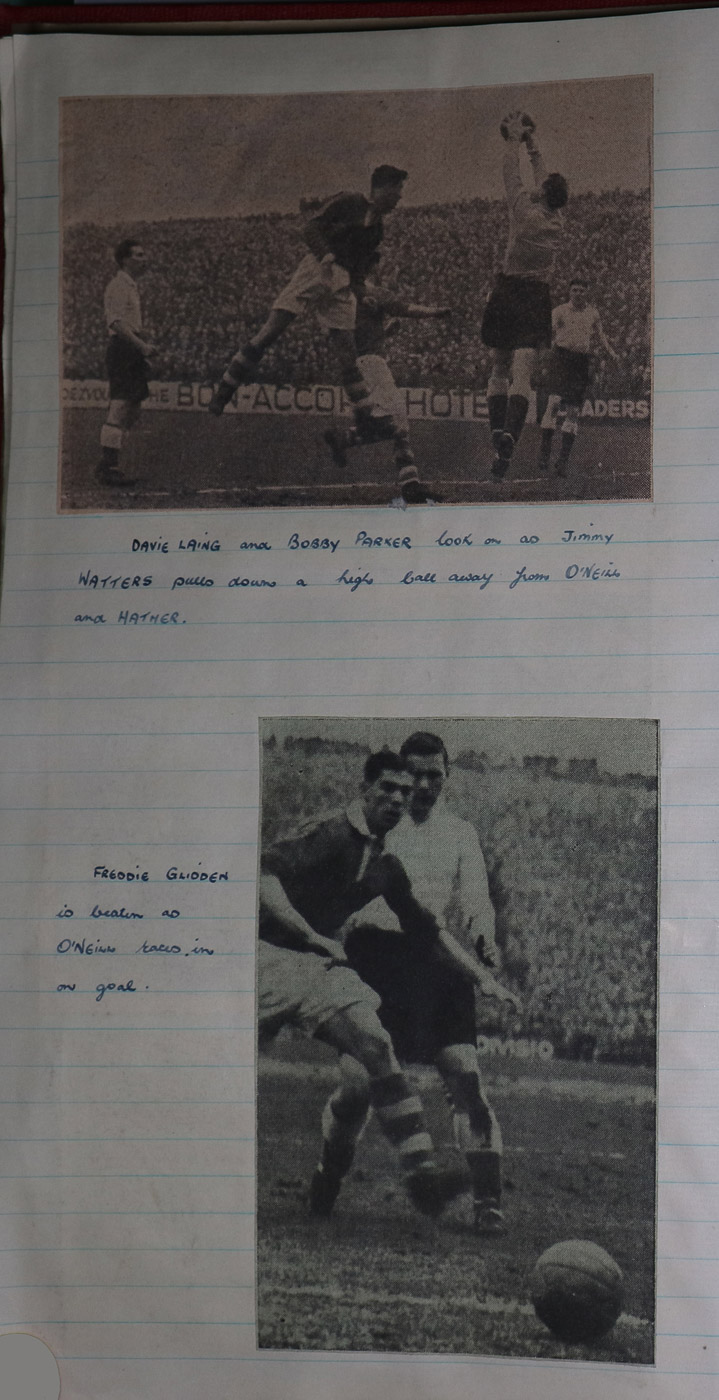 DEZVOU THE BON-ACCOR HOTE ADERS
DAVIE LAING and BOBBY PARKER look on as Jimmy
WATTERS pulls down a high ball away from O'NEILL
and HATHER.
FREDDIE GLIDDEN
is beaten as
O'NEILL races in
on goal.